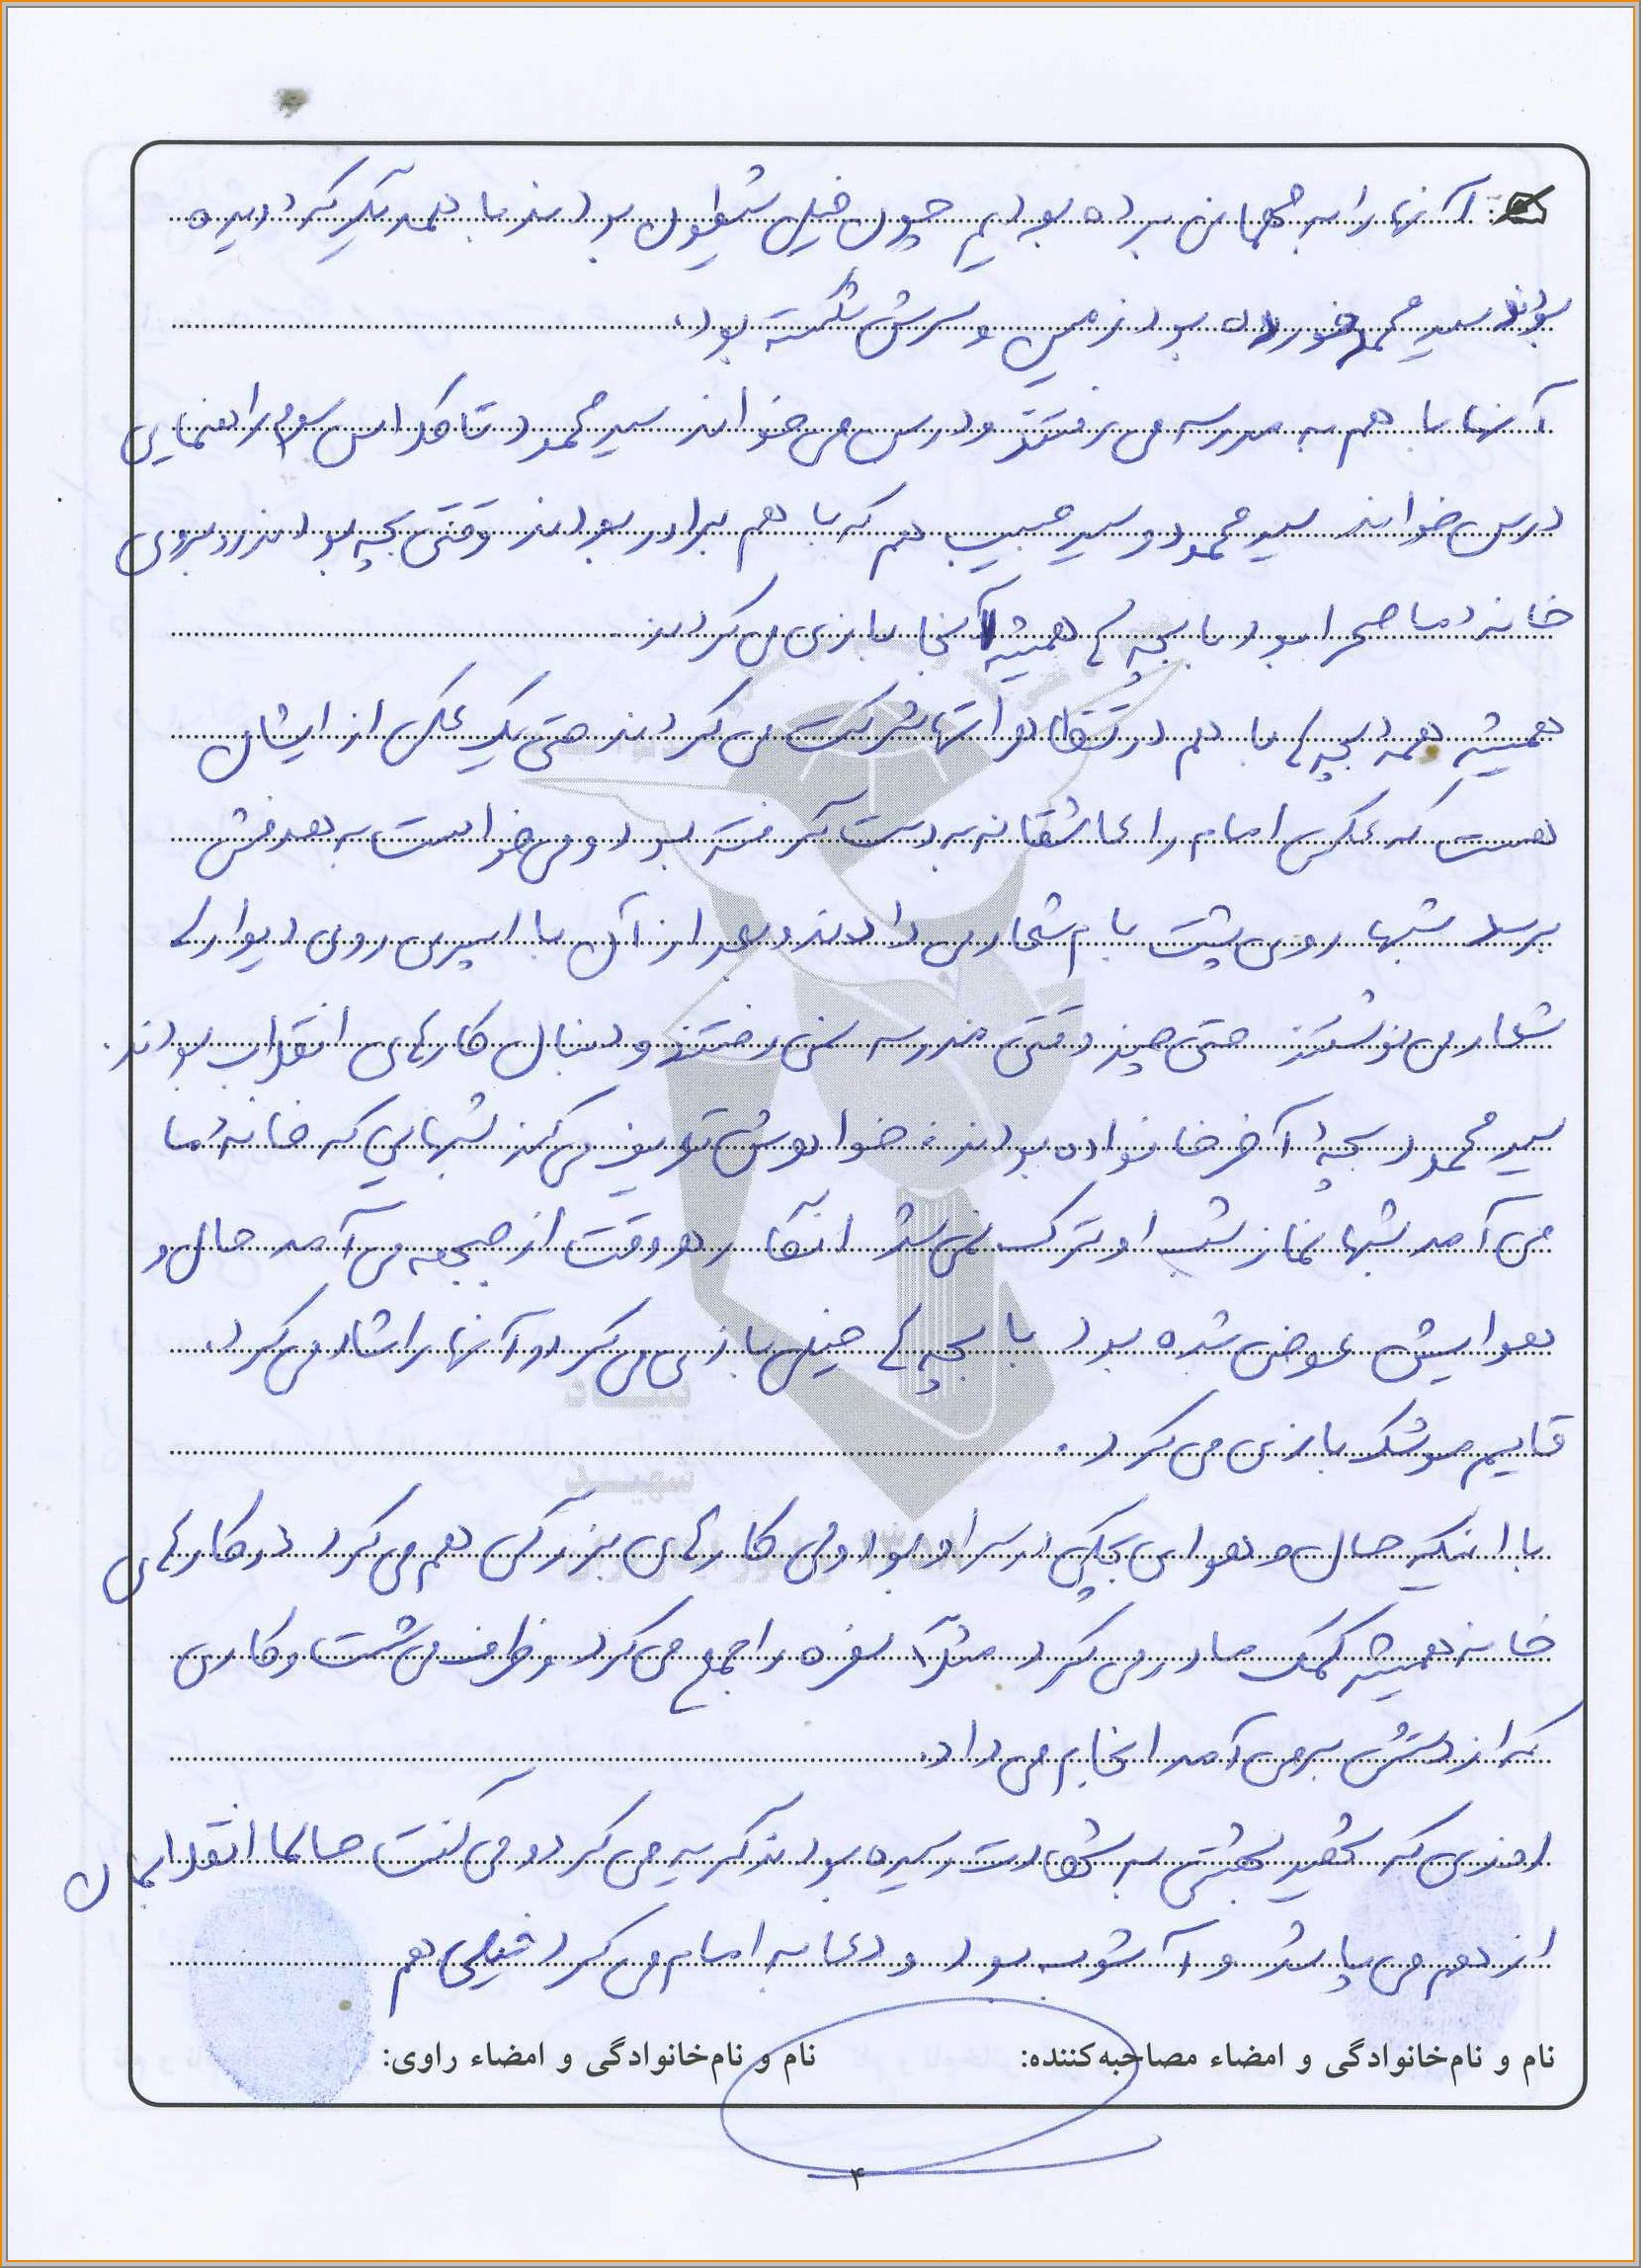 آنها را به مهمانی برده بودیم چون خیلی شیطون بودند با همدیگر که دویده
بودند سید محمود خورده بود زمین و سرش شکسته بود.
آنها با هم به مدرسه می رفتند و درس می خواند سید محمود تا کلاس سوم راهنمایی
درس خواند سید محمود و سید حبیب هم که با هم برادر بودند وقتی بچه بودند روبروی
خانه ما صحرا بود با بچه ها همیشه آنجا بازی می کردند
همیشه همه بچه ها با هم در تظاهراتها شرکت می کردند حتی یک عکس از ایشان
هست که عکس امام را عاشقانه به دست گرفته بود و می خواست به هدفش
برسد شبها روی پشت بام شعار می دادند و بعد از آن با اسپری روی دیوار ها
شعار می نوشتند حتی چند وقتی مدرسه نمی رفتند و دنبال کارهای انقلاب بودند.
سید محمود بچه آخر خانواده بودند خواهرش تعریف می کند شبهایی که خانه ما
می آمد شبها نماز شب او ترک نمی شد انگار هر وقت از جبهه می آمد حال و
هوایش عوض شده بود با بچه ها خیلی بازی می کرد و آنها را شاد می کرد.
قایم موشک بازی می کرد.
با اینکه حال و هوای بچگی در سر او بود ولی کارهای بزرگی هم می کرد در کارهای
خانه همیشه کمک مادر می کرد مثلاً سفره را جمع می کرد و ظرف می شست و کاری
که از دستش برمی آمد انجام می داد.
روزی که شهید بهشتی به شهادت رسیده بودند گریه می کرد و می گفت حالا انقلابمان
از هم می پاشد و آشوب بود و دعا به امام می کرد خیلی هم
نام و نام‌خانوادگی و امضاء مصاحبه‌کننده: نام و نام‌خانوادگی و امضاء راوی:
۴